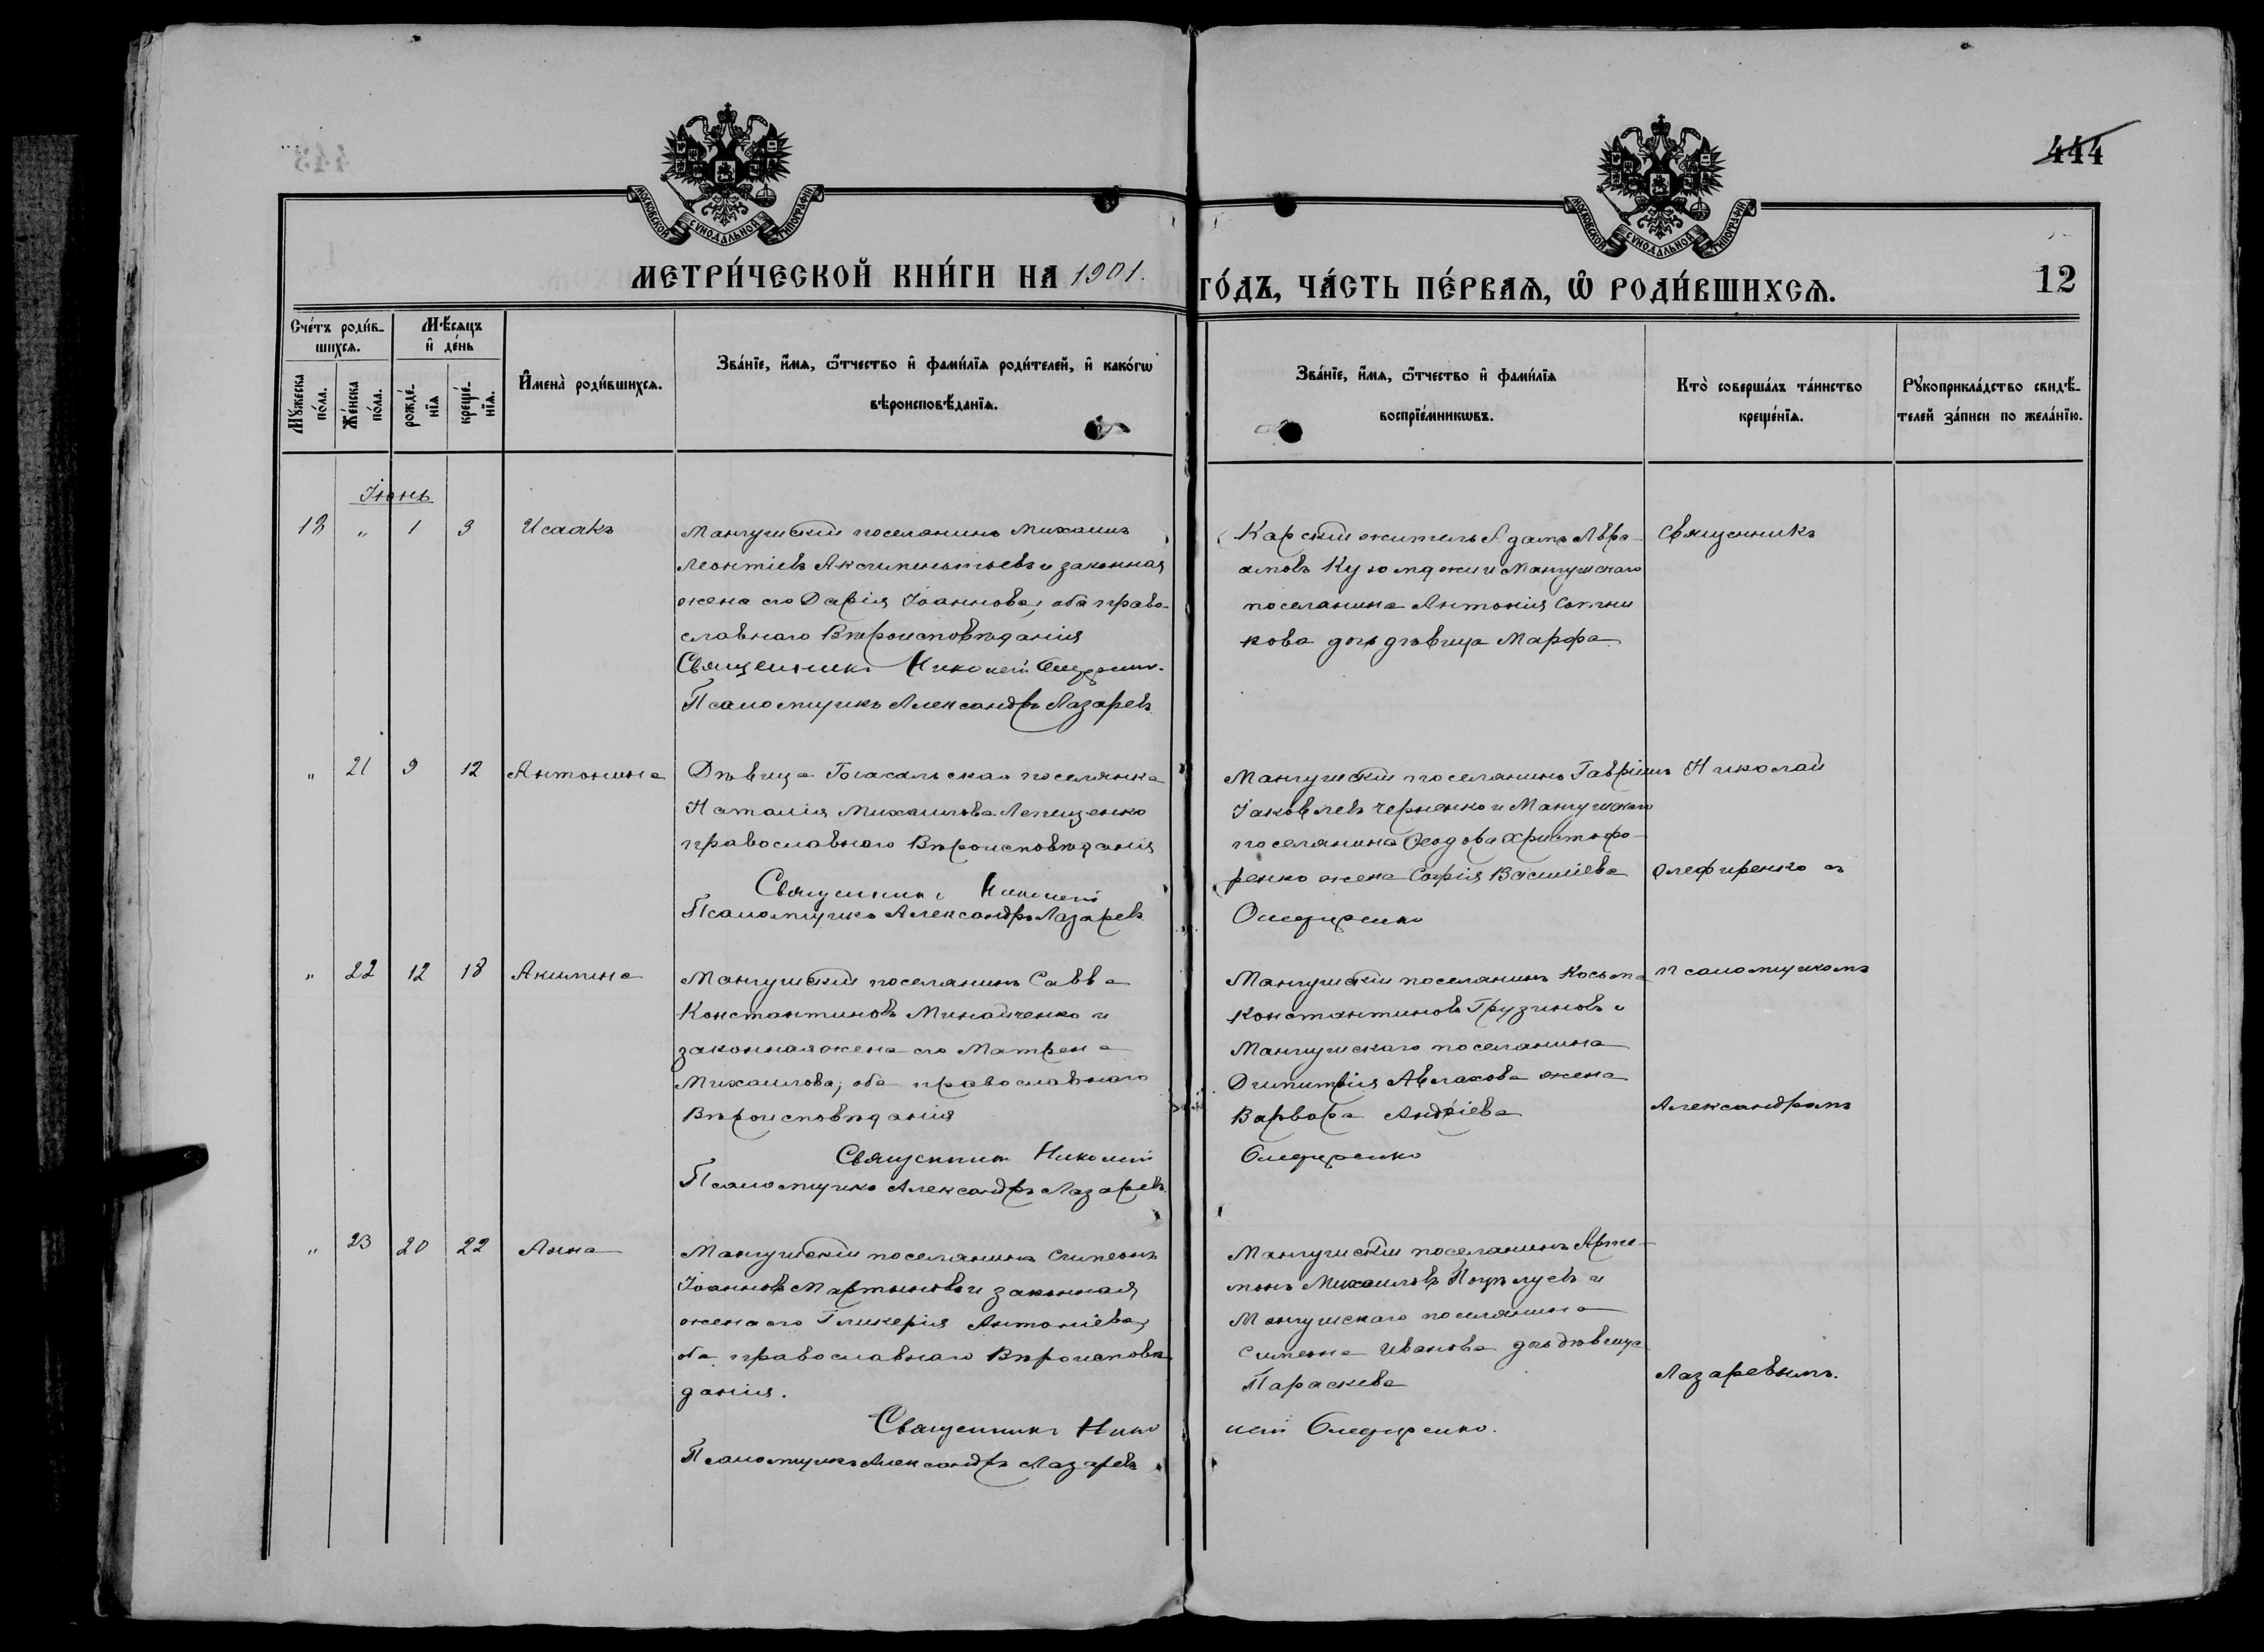 444
МОСКОВСКОЙ СѴНОДАЛЬНОЙ ТИПОГРАФІИ
МОСКОВСКОЙ СѴНОДАЛЬНОЙ ТИПОГРАФІИ
МЕТРИ́ЧЕСКОЙ КНИ́ГИ НА 1901. ГО́ДЪ, ЧА́СТЬ ПЕ́РВАѦ, Ѡ РОДИ́ВШИХСѦ.
12
Сче́тъ роди́в-
шихсѧ.
Мѣ́сѧцъ
и де́нь
Мꙋ́жеска
по́ла.
Же́нска
по́ла.
рожде́-
нїѧ
креще́-
нїѧ.
Имена̀ роди́вшихсѧ.
Зва́нїе, и́мѧ, ѻ́тчество и фами́лїѧ роди́телей, и како́гѡ
вѣроисповѣ́данїѧ.
Зва́нїе, и́мѧ, ѻ́тчество и фами́лїѧ
воспрїе́мникѡвъ.
Кто̀ соверша́лъ та́инство
креще́нїѧ.
Рꙋкоприкла́дство свидѣ́-
телей за́писи по жела́нїю.
Іюнь
18 " 1 3 Исаакъ
Мангушскій поселянинъ Михаилъ
Леонтіевъ и законная
жена его Дарія Іоаннова, оба право-
славнаго Вѣроисповѣданія
Священникъ Николай Олефиренко
Псаломщикъ Александръ Лазаревъ
Карскій житель Адамъ Авра-
амовъ Куюмджи и Мангушскаго
поселянина Антонія Сотни
кова дочь дѣвица Марфа
Священникъ
" 21 9 12 Антонина
Дѣвица поселянка
Наталія Михаилова Лепещенко
православнаго Вѣроисповѣданія
Священникъ Николай
Псаломщикъ Александръ Лазаревъ
Мангушскій поселянинъ Гавріилъ
Іаковлевъ Черненко и Мангушскаго
поселянина Ѳеодора Христофо-
ренко жена Софія Василіева
Олефиренко
Николай
Олефиренко съ
" 22 12 18 Акилина
Мангушскій поселянинъ Савва
Константиновъ Минайченко и
законная жена его Матрена
Михаилова, оба православнаго
Вѣроисповѣданія
Священникъ Николай
Псаломщикъ Александръ Лазаревъ
Мангушскій поселянинъ Косьма
Константиновъ Грузиновъ и
Мангушскаго поселянина
Димитрія Авлахова жена
Варвара Андріева
Олефиренко
псаломщикомъ
Александромъ
" 23 20 22 Анна
Мангушскій поселянинъ Симеонъ
Іоанновъ Мартыновъ и законная
жена его Гликерія Антоніева,
оба православнаго Вѣроисповѣ-
данія.
Священникъ Нико
Псаломщикъ Александръ Лазаревъ
Мангушскій поселянинъ Арте-
монъ Михаиловъ Поцѣлуевъ и
Мангушскаго поселянина
Симеона Иванова дочь дѣвица
Параскева
лай Олефиренко.
Лазаревымъ.